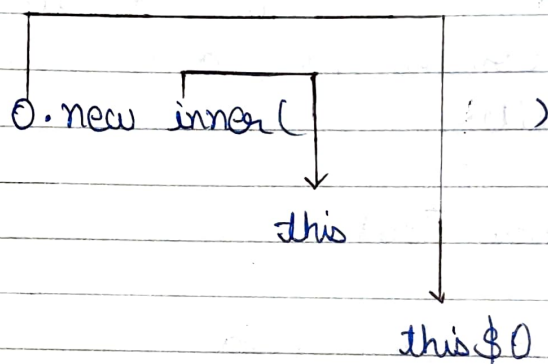 O.new inner( )
this
this$0